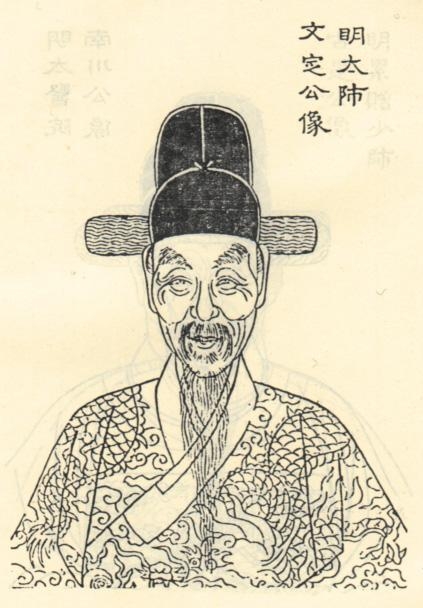 明太師
文定公像